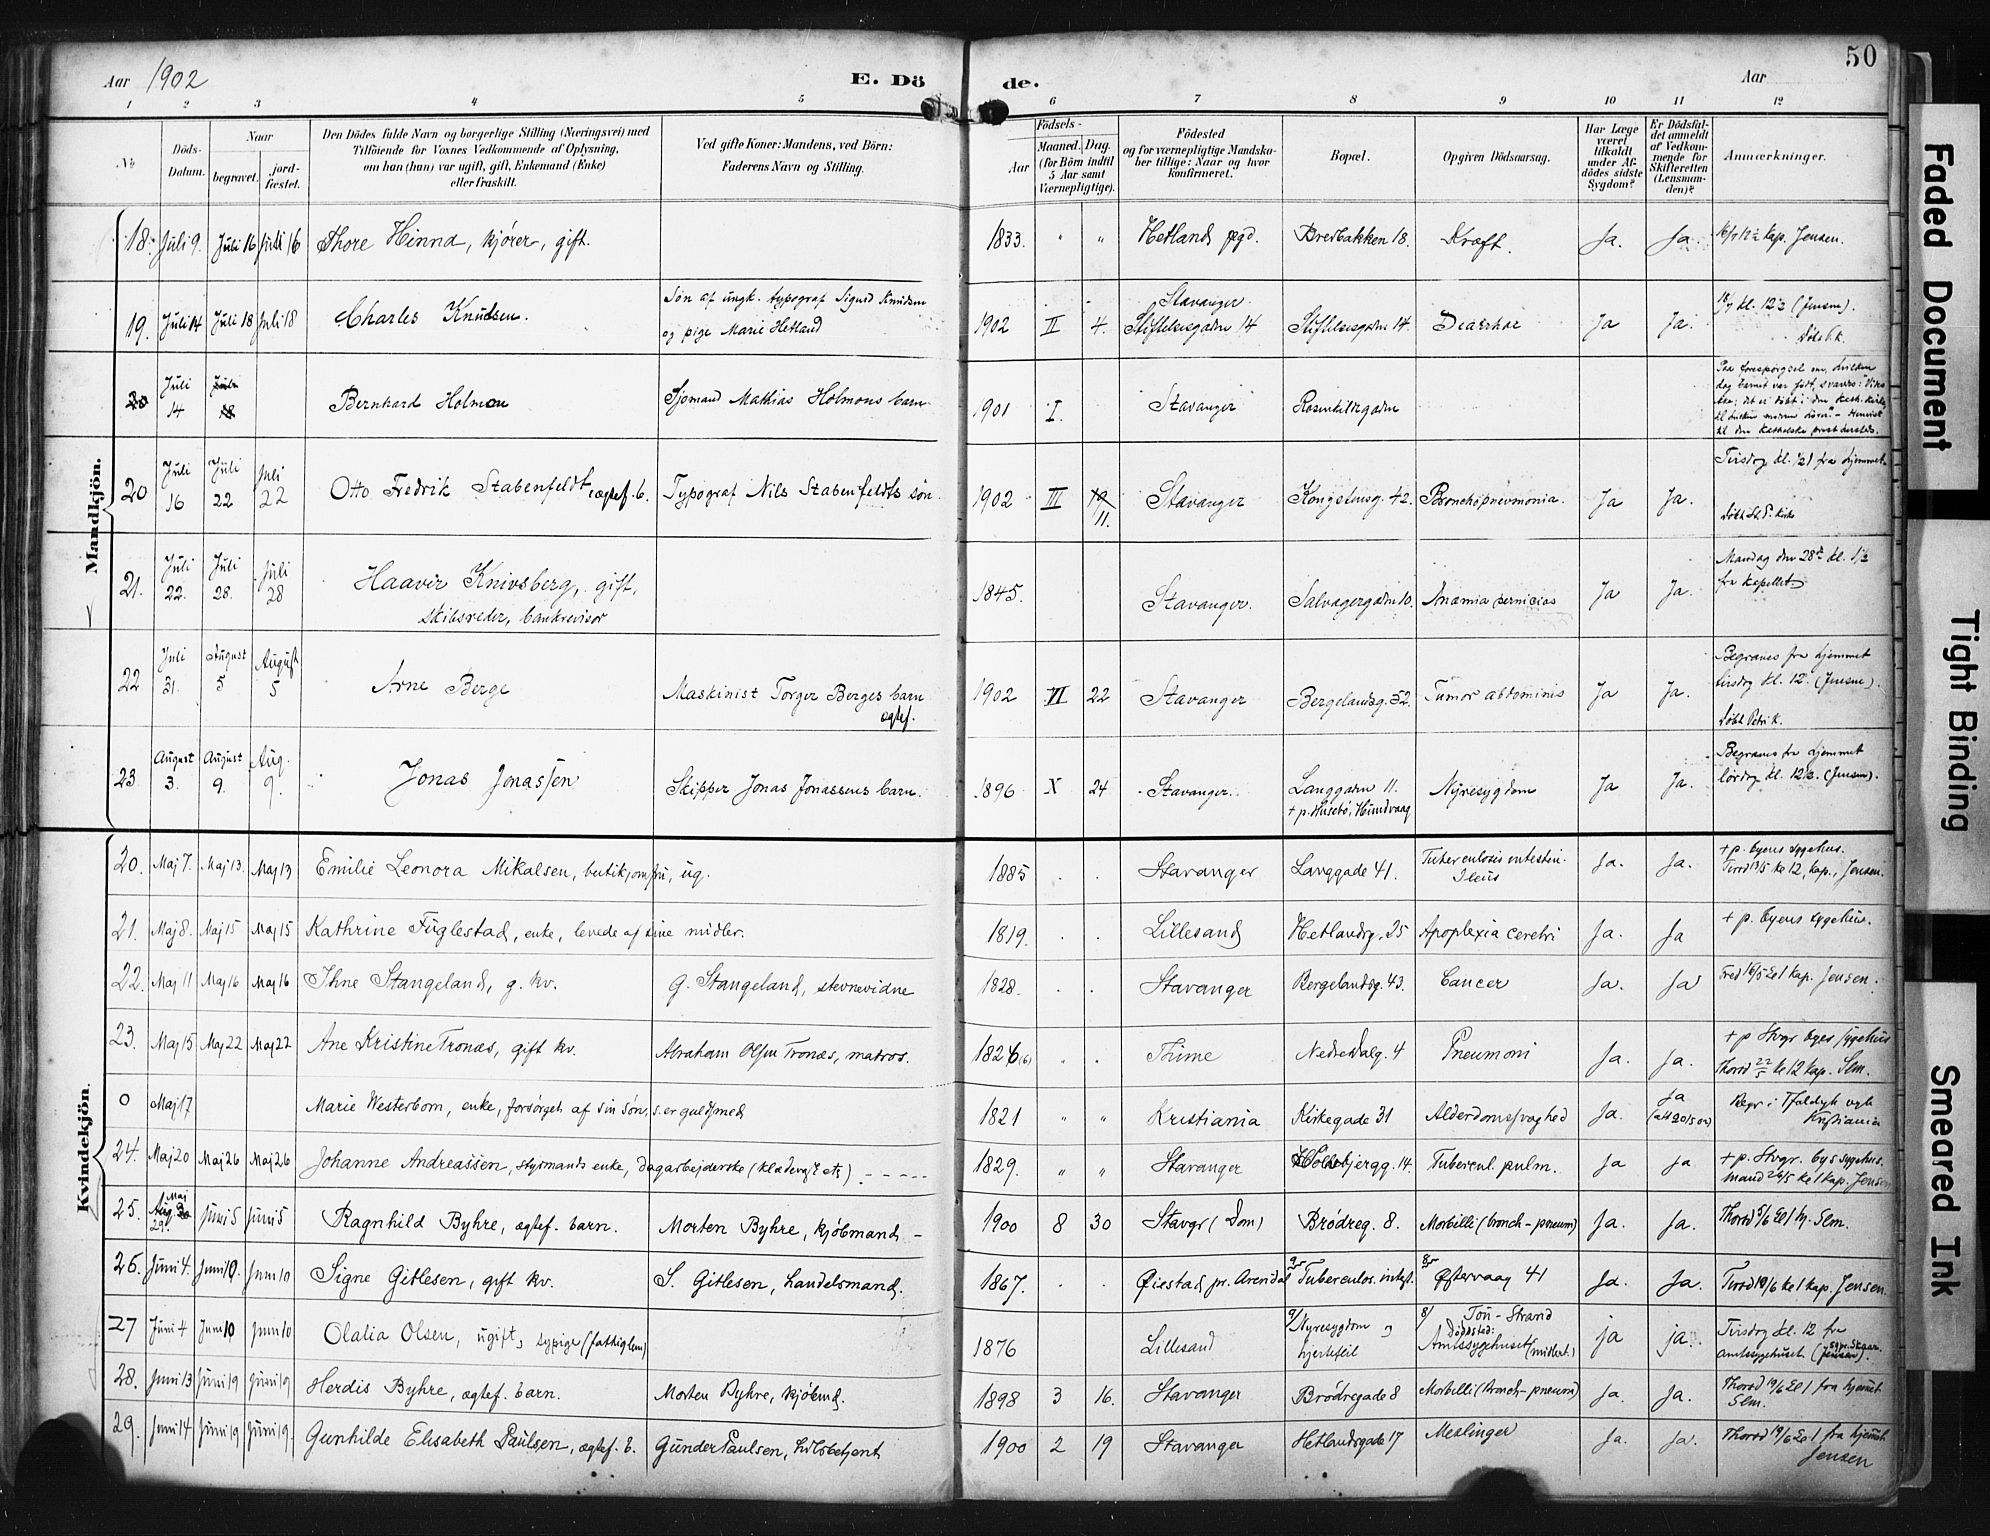 Aar 1902 E. Dö de. Aar 50
1 2 3 4 5 6 7 8 9 10 11 12
No. Döds-Datum. Naar begravet. jord-fæstet. Den Dödes fulde Navn og borgerlige Stilling (Næringsvei) med Tilföiende for Voxnes Vedkommende af Oplysning, om han (hun) var ugift, gift, Enkemand (Enke) eller fraskilt. Ved gifte Koner: Mandens, ved Börn: Faderens Navn og Stilling. Födsels- Aar Maaned. Dag. (for Börn indtil 5 Aar samt Værnepligtige). Födested og for værnepligtige Mandskaber tillige: Naar og hvor konfirmeret. Bopæl. Opgiven Dödsaarsag. Har Læge været tilkaldt under Afdödes sidste Sygdom? Er Dödsfaldet anmeldt af Vedkommende for Skifteretten (Lensmanden)? Anmærkninger.
Mandkjön.
18. Juli 9. Juli 16 Juli 16 Thore Hinna, kjører, gift. 1833. " " Hetland pgd. Bredbakken 18. Kræft. Ja. Ja. kap. Jensen.
19. Juli 14 Juli 18 Juli 18 Charles Knudsen. Søn af ungk. typograf Sigurd Knudsen og pige Marie Hetland 1902 II 4. Stavanger Stiftelsesgaden 14 Stiftelsesgaden 14. Diarrhoe Ja Ja. 18/7 kl. 12½ (Jensen).
20 Juli 14 Juli 18 Bernhard Holmen Sjømand Mathias Holmens barn 1901 I. Stavanger Rosenkildegaden
20 Juli 16 Juli 22 Juli 22 Otto Fredrik Stabenfeldt, ægtef. b. Typograf Nils Stabenfeldts søn. 1902 III 11. Stavanger Kongstensg. 42. Bronchopneumonia. Ja Ja. Tirsdag kl. 12½ fra hjemmet. Døbt St. P. kirke
21. Juli 22. Juli 28. Juli 28 Haaver Knivsberg, gift, skibsreder, bankrevisor 1845. Stavanger. Salvagergaden 10. Anæmia pernicios Ja Ja. Mandag den 28de kl. 1½ fra kapellet.
22 Juli 31. August 5 August 5 Arne Berge Maskinist Torger Berges barn ægtef. 1902 VI 22 Stavanger Bergelandsg. 52. Tumor abdominis Ja Ja. Begraves fra hjemmet tirsdag kl. 12. (Jensen). Døbt Petrik.
23. August 3. August 9. Aug. 9. Jonas Jonassen Skipper Jonas Jonassens barn. 1896 X 24 Stavanger. Langgaden 11. + p. Husebø, Hundvaag Nyresygdom Ja Ja. Begraves fra hjemmet lørdag kl. 12½. (Jensen).
Kvindekjön.
20. Maj 7. Maj 13. Maj 13 Emilie Leonora Mikalsen, butikjomfru, ug. 1885 . . Stavanger Langgade 41. Tuberculosis intestin. Ileus Ja. Ja. + p. byens sygehus. Tirsd 13/5 kl 12, kap., Jensen.
21. Maj 8. Maj 15 Maj 15 Kathrine Fuglestad, enke, levede af sine midler. 1819. . . Lillesand Hetlandsg. 25 Apoplexia cerebri Ja. Ja + p. byens sygehus.
22. Maj 11 Maj 16 Maj 16 Thne Stangeland, g. kv. G. Stangeland, stevnevidne 1828. . . Stavanger Bergelandsg. 43. Cancer Ja. Ja Fred 16/5 kl 1 kap. Jensen.
23. Maj 15 Maj 22 Maj 22 Ane Kristine Tronæs, gift kv. Abraham Olsen Tronæs, matros. 1826 (6) " . Thime Nedredalg. 4 Pneumoni Ja. Ja. + p Stvgr byes sygehus Thorsd 22/5 kl 12 kap. Slm.
0 Maj 17 Marie Westerbom, enke, forsørget af sin søn, s. er guldsmed 1821 " " Kristiania Kirkegade 31 Alderdomssvaghed Ja. Ja (att 20/5 02) Kristiania
24. Maj 20 Maj 26 Maj 26 Johanne Andreassen, styrmands enke, dagarbejderske (klædevask etc) 1829. " " Stavanger Holebjergg. 14. Tubercul. pulm. Ja Ja + p. Stvgr. bys sygehus. Mand 26/5 kl 1 kap. Jensen
25. Maj 29. Juni 5 Juni 5 Ragnhild Byhre, ægtef. barn. Morten Byhre, kjøbmand 1900 8 30 Stavgr (Dom) Brødreg. 8. Morbilli (bronch-pneum) Ja. Ja. Thorsd 5/6 kl 1 kp. Slm.
26. Juni 4. Juni 10. Juni 10 Signe Gitlesen, gift kv. S. Gitlesen, handelsmand. 1867. . . Øiestad, pr. Arendal Tuberculos. intest. Østervaag 41 Ja. Ja. Tirsd 10/6 kl 1 kap. Jensen.
27 Juni 4 Juni 10 Juni 10 Olalia Olsen, ugift, sypige (fattiglem) 1876 Lillesand 9/ Nyresygdom og hjertefeil 8/ Tou - Strand Dødssted: Amtssygehuset (midlert.) ja ja. Tirsdag kl. 12 fra amtssygehuset
28. Juni 13 Juni 19 Juni 19 Herdis Byhre, ægtef. barn. Morten Byhre, kjøbmd. 1898 3 16. Stavanger Brødregade 8 Morbilli (bronch-pneum) Ja. Ja. Thorsd 19/6 kl 1 fra hjemmet Slm.
29. Juni 14 Juni 19 Juni 19. Gunhilde Elisabeth Paulsen, ægtef. b. Gunder Paulsen, hdlsbetjent 1900 2 19 Stavanger Hetlandsgade 17 Meslinger Ja. Ja. Thorsd 19/6 kl 1 fra hjemmet Jensen
Faded Document
Tight Binding
Smeared Ink